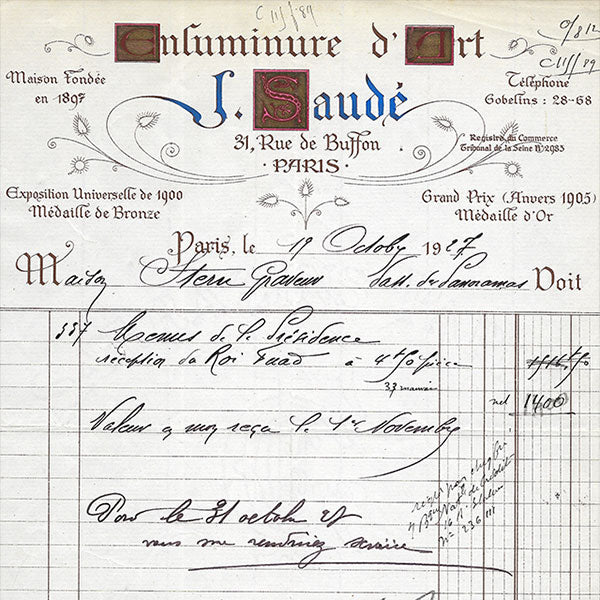 C 11/ /89
Enluminure d'Art
C 11/ /89
Maison Fondée
en 1897
J. Saudé
Téléphone
Gobelins : 28-68
31, Rue de Buffon
Registre du Commerce
Tribunal de la Seine N° 2985
· PARIS ·
Exposition Universelle de 1900
Médaille de Bronze
Grand Prix (Anvers 1905)
Médaille d'Or
Paris, le 19 Octobre 1927
Maison Stern Graveur Pass. des Panoramas Doit
337 Menus de la Présidence
réception du Roi Fuad à 4 f 50 pièce
33 mauvais
net 1400
Valeur en mon reçu le 1er Novembre
Pour le 31 octobre 27
vous me rendriez service
reçu par chèque
N° 236